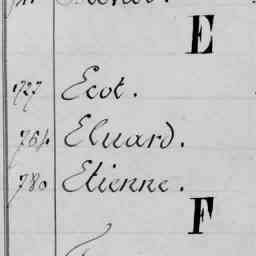 E
727 Ecot.
764 Eluard.
780 Etienne.
F